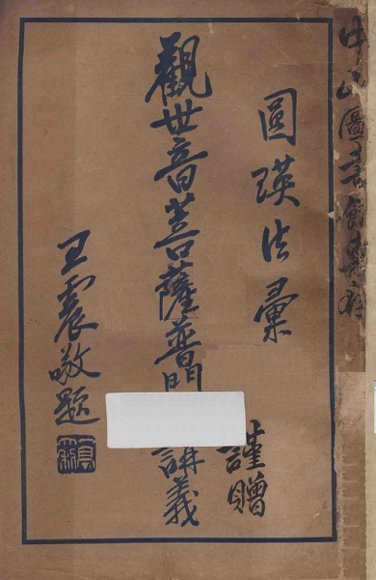 中山圖書館惠存
圓瑛法彙
謹贈
觀世音菩薩普門
講義
王震敬題